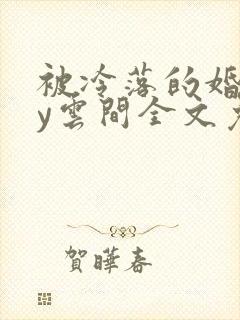 被冷落的婚
y雲間全文
賀曄春